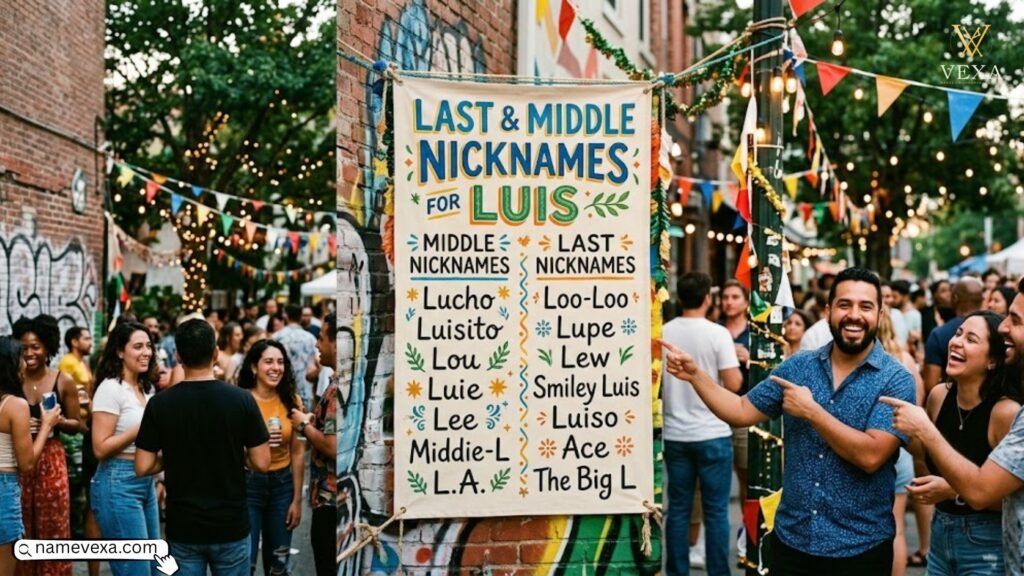 LAST & MIDDLE
NICKNAMES
FOR LUIS
MIDDLE
NICKNAMES
Lucho
Luisito
Lou
Luie
Lee
Middie-L
L.A.
LAST
NICKNAMES
Loo-Loo
Lupe
Lew
Smiley Luis
Luiso
Ace
The Big L
VEXA
namevexa.com